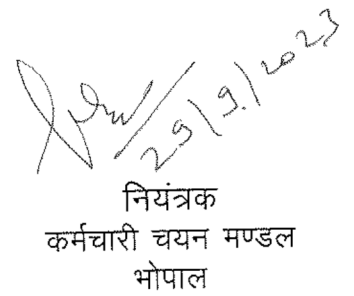 29/9/2023
नियंत्रक
कर्मचारी चयन मण्डल
भोपाल